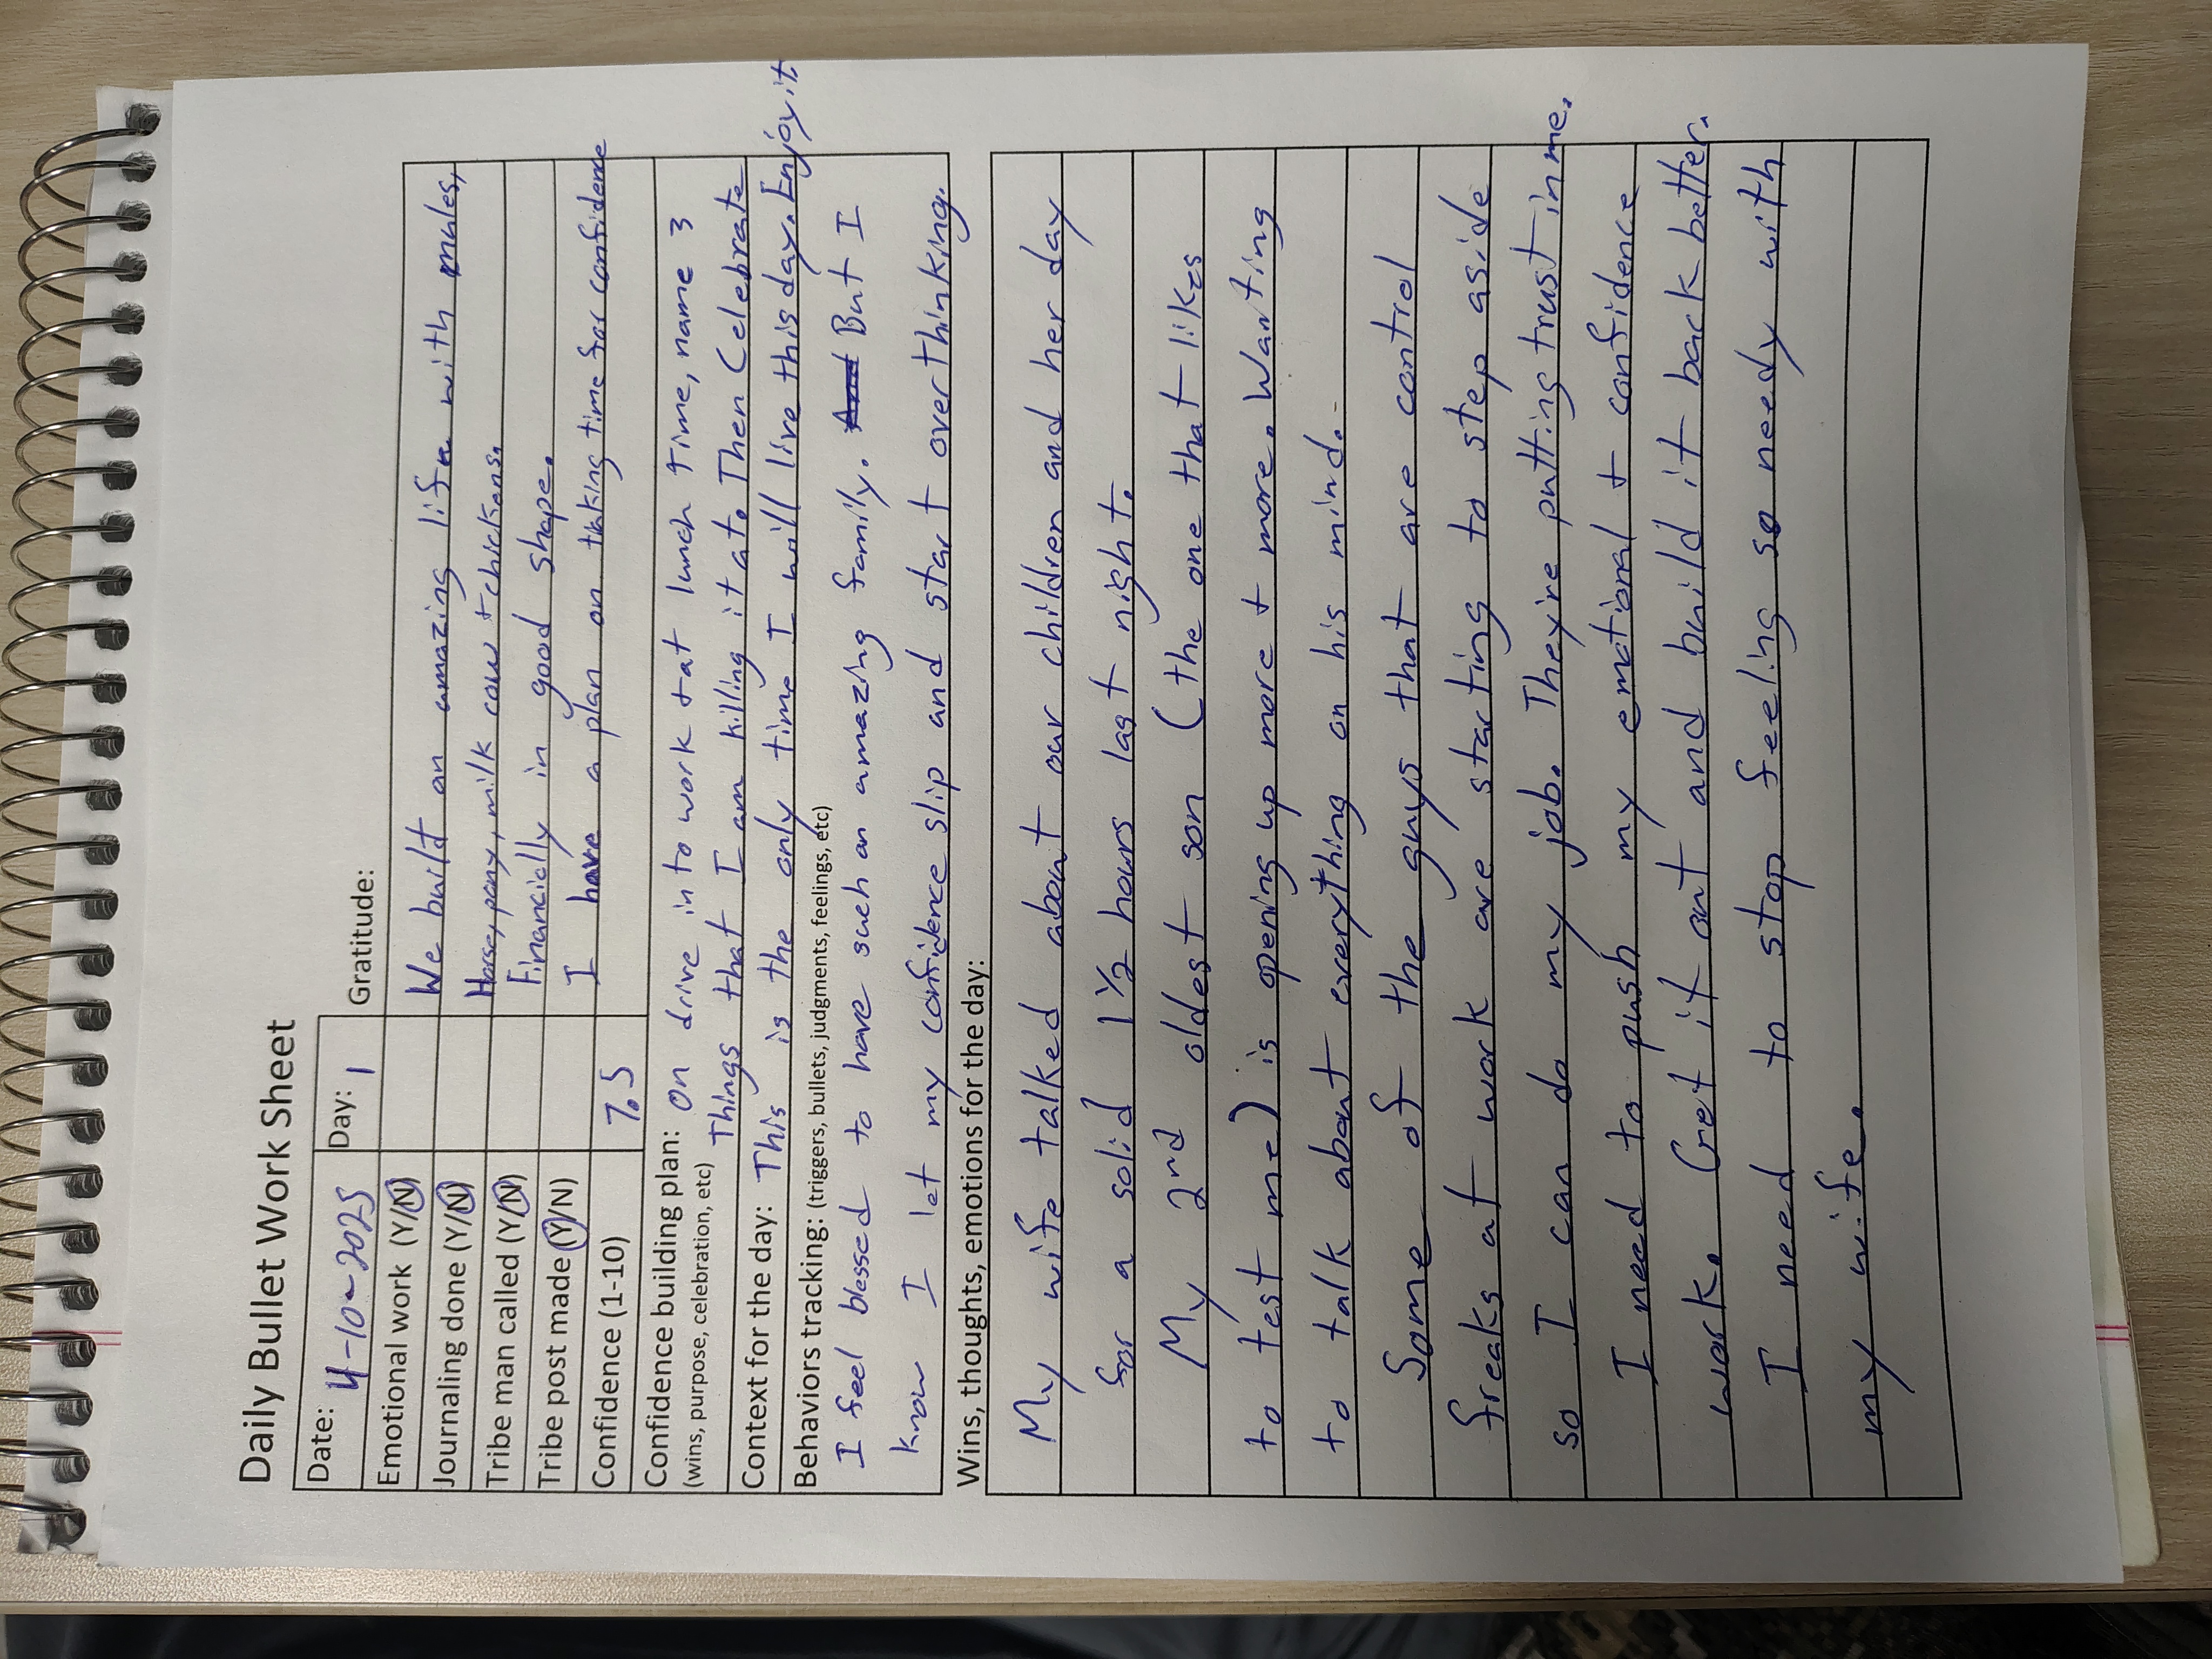 Daily Bullet Work Sheet
Date: 4-10-2025 Day: 1 Gratitude:
Emotional work (Y/N) We built an amazing life with mules,
Journaling done (Y/N) Horse, pony, milk cow + chickens.
Tribe man called (Y/N) Financially in good shape.
Tribe post made (Y/N) I have a plan on taking time for confidence
Confidence (1-10) 7.5
Confidence building plan: On drive in to work + at lunch time, name 3
(wins, purpose, celebration, etc) Things that I am killing it at. Then Celebrate
Context for the day: This is the only time I will live this day. Enjoy it
Behaviors tracking: (triggers, bullets, judgments, feelings, etc)
I feel blessed to have such an amazing family. And But I
know I let my confidence slip and start overthinking.
Wins, thoughts, emotions for the day:
My wife talked about our children and her day
for a solid 1 1/2 hours last night.
My 2nd oldest son (the one that likes
to test me) is opening up more + more. Wanting
to talk about everything on his mind.
Some of the guys that are control
freaks at work are starting to step aside
so I can do my job. They're putting trust in me.
I need to push my emotional + confidence
work. Get it out and build it back better.
I need to stop feeling so needy with
my wife.